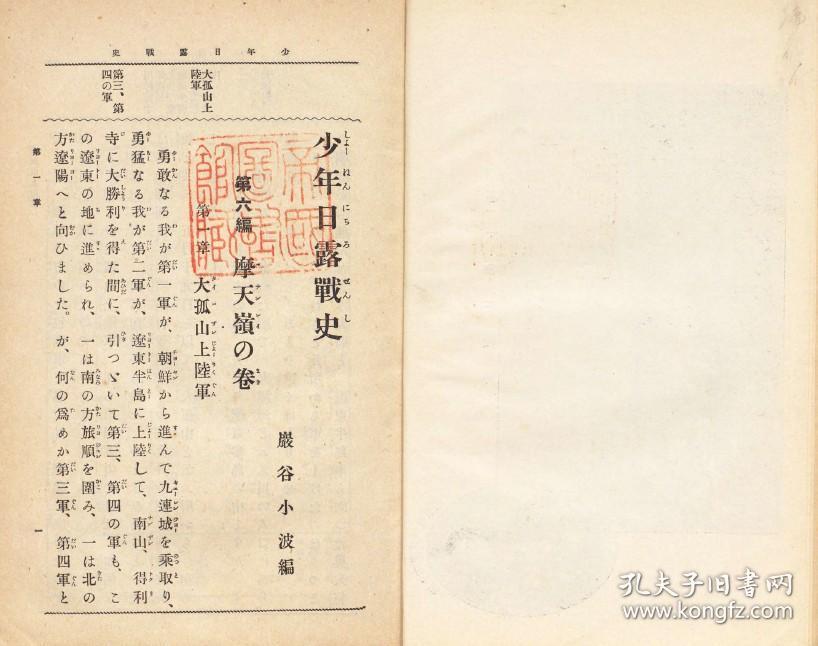 少年日露戰史
大孤山上
陸軍
第三、第
四の軍
少年日露戰史
第六編 摩天嶺の卷
巖谷小波編
第一章 大孤山上陸軍
勇敢なる我が第一軍が、朝鮮から進んで九連城を乘取り、
勇猛なる我が第二軍が、遼東半島に上陸して、南山、得利
寺に大勝利を得た間に、引つゞいて第三、第四の軍も、こ
の遼東の地に進められ、一は南の方旅順を圍み、一は北の
方遼陽へと向ひました。が、何の爲めか第三軍、第四軍と
第一章
一
帝國圖書館藏
孔夫子旧书网
www.kongfz.com